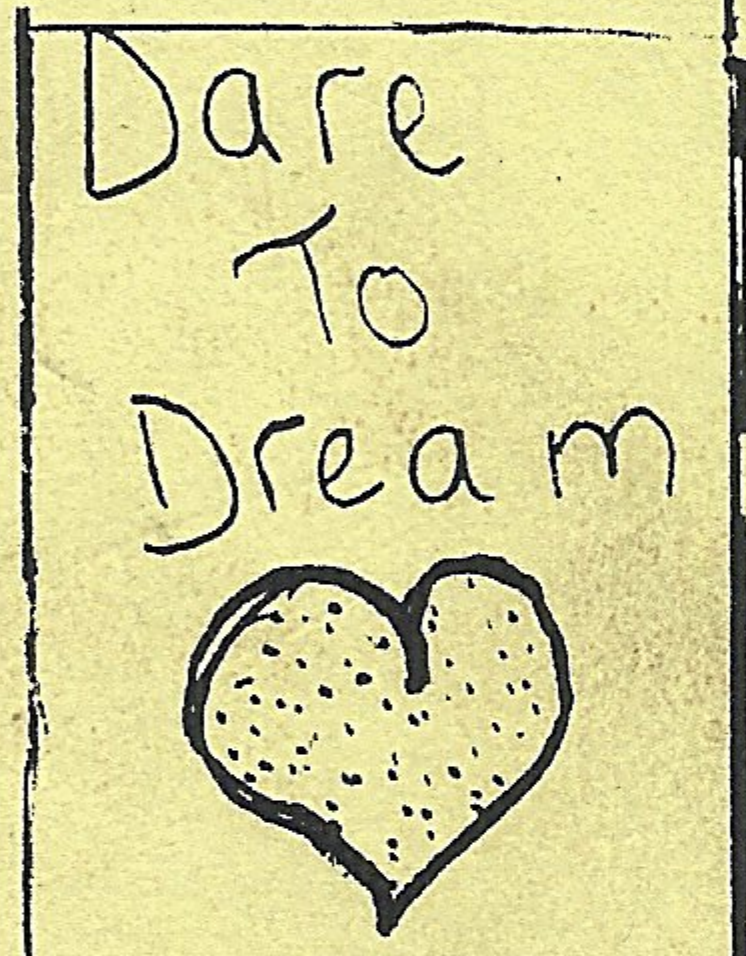 Dare
To
Dream